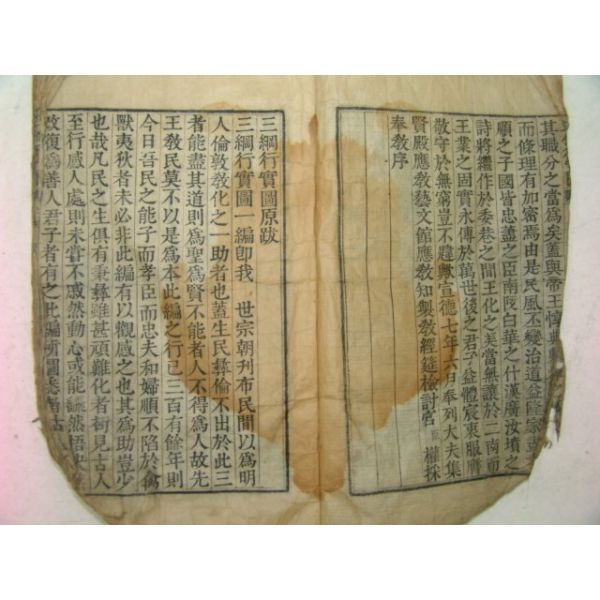 其職分之當爲矣蓋與帝王惇典
而條理有加密焉由是民風丕變治道益隆家
順之子國皆忠藎之臣南陔白華之什漢廣汝墳之
詩將繼作於委巷之間王化之美當無讓於二南而
王業之固實永傳於萬世後之君子益體宸衷服膺
敬守於無窮豈不韙歟宣德七年六月 奉列大夫集
賢殿應敎藝文館應敎知製敎經筵檢討官 臣 權採
奉敎序
三綱行實圖原跋
三綱行實圖一編卽我 世宗朝刊布民間以爲明
人倫敦敎化之一助者也蓋生民彝倫不出於此三
者能盡其道則爲聖爲賢不能者人不得爲人故先
王敎民莫不以是爲本此編之行已三百有餘年則
今日吾民之能子而孝臣而忠夫和婦順不陷於禽
獸夷狄者未必非此編有以觀感之也其爲助豈少
也哉凡民之生俱有秉彝雖甚頑難化者衎見古人
至行感人處則未甞不慼然動心或能
改復爲善人君子者有之此編所圖